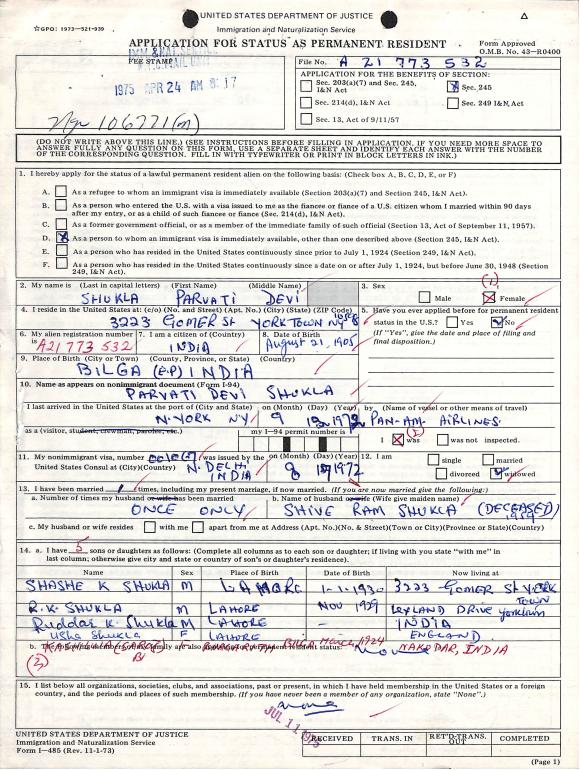 ☆GPO: 1973—521-939
UNITED STATES DEPARTMENT OF JUSTICE
Immigration and Naturalization Service
APPLICATION FOR STATUS AS PERMANENT RESIDENT
Form Approved
O.M.B. No. 43—R0400
FEE STAMP
1975 APR 24 AM 8:17
File No. A 21 773 532
APPLICATION FOR THE BENEFITS OF SECTION:
Sec. 203(a)(7) and Sec. 245, I&N Act
Sec. 245
Sec. 214(d), I&N Act
Sec. 249 I&N Act
Sec. 13, Act of 9/11/57
106771(m)
(DO NOT WRITE ABOVE THIS LINE.) (SEE INSTRUCTIONS BEFORE FILLING IN APPLICATION. IF YOU NEED MORE SPACE TO
ANSWER FULLY ANY QUESTION ON THIS FORM, USE A SEPARATE SHEET AND IDENTIFY EACH ANSWER WITH THE NUMBER
OF THE CORRESPONDING QUESTION. FILL IN WITH TYPEWRITER OR PRINT IN BLOCK LETTERS IN INK.)
1. I hereby apply for the status of a lawful permanent resident alien on the following basis: (Check box A, B, C, D, E, or F)
A. As a refugee to whom an immigrant visa is immediately available (Section 203(a)(7) and Section 245, I&N Act).
B. As a person who entered the U.S. with a visa issued to me as the fiancee or fiance of a U.S. citizen whom I married within 90 days
after my entry, or as a child of such fiancee or fiance (Sec. 214(d), I&N Act).
C. As a former government official, or as a member of the immediate family of such official (Section 13, Act of September 11, 1957).
D. As a person to whom an immigrant visa is immediately available, other than one described above (Section 245, I&N Act).
E. As a person who has resided in the United States continuously since prior to July 1, 1924 (Section 249, I&N Act).
F. As a person who has resided in the United States continuously since a date on or after July 1, 1924, but before June 30, 1948 (Section
249, I&N Act).
2. My name is (Last in capital letters) (First Name) (Middle Name)
SHUKLA PARVATI DEVI
3. Sex
Male Female
4. I reside in the United States at: (c/o) (No. and Street) (Apt. No.) (City) (State) (ZIP Code)
3223 GOMER St YORKTOWN NY
5. Have you ever applied before for permanent resident
status in the U.S.? Yes No
(If "Yes", give the date and place of filing and
final disposition.)
6. My alien registration number is
A21 773 532
7. I am a citizen of (Country)
INDIA
8. Date of Birth
August 21, 1905
9. Place of Birth (City or Town) (County, Province, or State) (Country)
BILGA (E.P) INDIA
10. Name as appears on nonimmigrant document (Form I-94)
PARVATI DEVI SHUKLA
I last arrived in the United States at the port of (City and State)
N.YORK NY
on (Month) (Day) (Year)
by (Name of vessel or other means of travel)
PAN-AM. AIRLINES.
as a (visitor, student, crewman, parolee, etc.)
my I—94 permit number is
I was was not inspected.
11. My nonimmigrant visa, number was issued by the
United States Consul at (City)(Country)
N. DELHI INDIA
on (Month) (Day) (Year)
12. I am
single married
divorced widowed
13. I have been married 1 times, including my present marriage, if now married. (If you are now married give the following:)
a. Number of times my husband or wife has been married
ONCE ONLY
b. Name of husband or wife (Wife give maiden name)
SHIVE RAM SHUKLA (DECEASED)
c. My husband or wife resides with me apart from me at Address (Apt. No.)(No. & Street)(Town or City)(Province or State)(Country)
14. a. I have 5 sons or daughters as follows: (Complete all columns as to each son or daughter; if living with you state "with me" in
last column; otherwise give city and state or country of son's or daughter's residence).
Name Sex Place of Birth Date of Birth Now living at
SHASHE K SHUKLA M LAHORE 1-1-1930 3223 GOMER St YORK TOWN
R.K. SHUKLA M LAHORE NOV 1929 LEYLAND DRIVE Yorktown
Ruddar K. Shukla M LAHORE - INDIA
Usha Shukla F LAHORE ENGLAND
NAKODAR, INDIA
15. I list below all organizations, societies, clubs, and associations, past or present, in which I have held membership in the United States or a foreign
country, and the periods and places of such membership. (If you have never been a member of any organization, state "None".)
none
JUL 11 1975
UNITED STATES DEPARTMENT OF JUSTICE
Immigration and Naturalization Service
Form I—485 (Rev. 11-1-73)
RECEIVED TRANS. IN RET'D-TRANS. OUT COMPLETED
(Page 1)